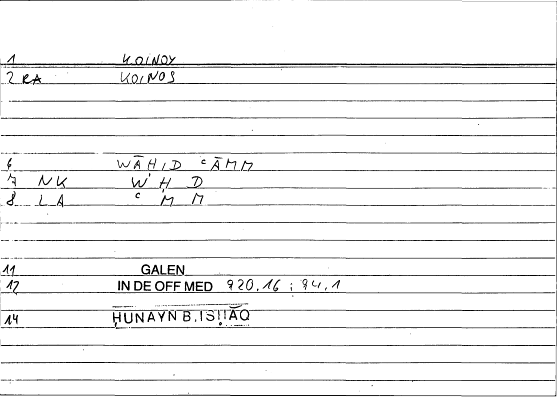 1 KOINOY
2 RA KOINOS
6 WĀḤID ᶜĀMM
7 NK W Ḥ D
8 LA ᶜ M M
11 GALEN
12 IN DE OFF MED 920,16 ; 94,1
14 ḤUNAYN B. ISḤĀQ